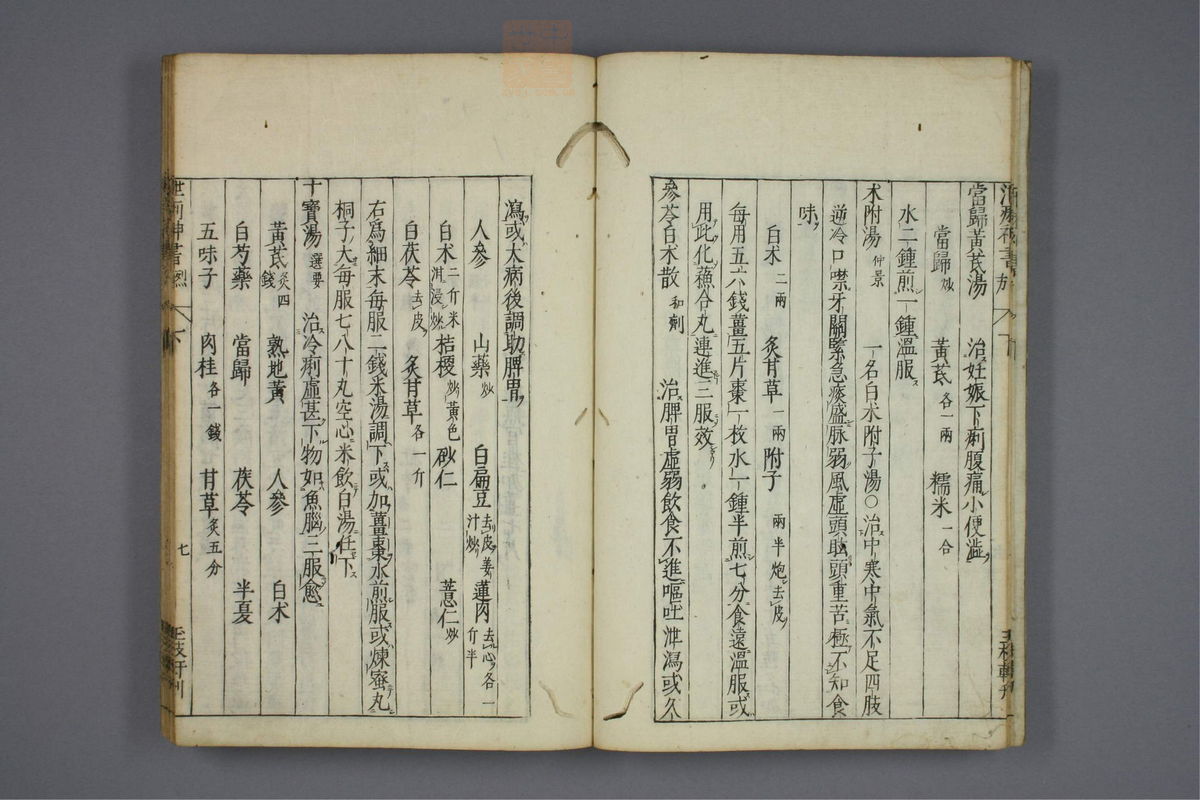 當歸黃茋湯 治妊娠下痢腹痛小便澁
當歸炒 黃茋各一兩 糯米一合
水二鍾煎一鍾溫服
朮附湯仲景 一名白朮附子湯○治中寒中氣不足四肢
逆冷口噤牙關緊急痰盛脉弱風虛頭眩頭重苦極不知食
味
白朮二兩 炙甘草一兩 附子兩半炮去皮
每用五六錢薑五片棗一枚水一鍾半煎七分食遠溫服或
用此化蘓合丸連進三服效
參苓白朮散和劑 治脾胃虛弱飲食不進嘔吐泄瀉或久
瀉或大病後調助脾胃
人參 山藥炒 白扁豆去皮姜汁炒 蓮肉去心各一斤半
白朮二斤米泔浸炒 桔梗炒黃色 砂仁 薏仁炒
白茯苓去皮 炙甘草各一斤
右爲細末每服二錢米湯調下或加薑棗水煎服或煉蜜丸
桐子大每服七八十丸空心米飲白湯任下
十寶湯選要 治冷痢虛甚下物如魚腦三服愈
黃茋炙四錢 熟地黃 人參 白朮
白芍藥 當歸 茯苓 半夏
五味子 肉桂各一錢 甘草炙五分
七